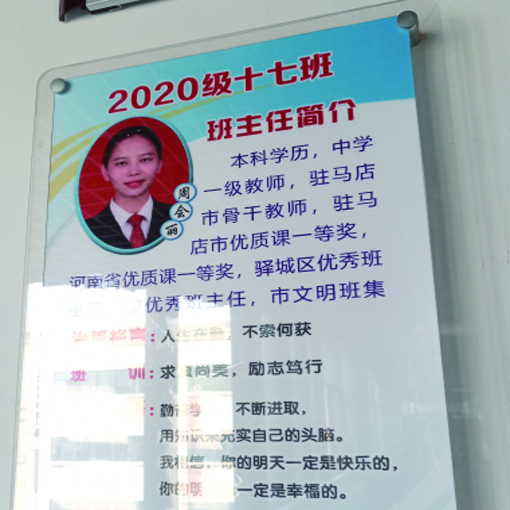 2020级十七班
班主任简介
周会丽
本科学历，中学
一级教师，驻马店
市骨干教师，驻马
店市优质课一等奖，
河南省优质课一等奖，驿城区优秀班
优秀班主任，市文明班集
人生在勤，不索何获
训：求真尚美，励志笃行
勤 不断进取，
用知识来充实自己的头脑。
我相信，你的明天一定是快乐的，
你的明 一定是幸福的。